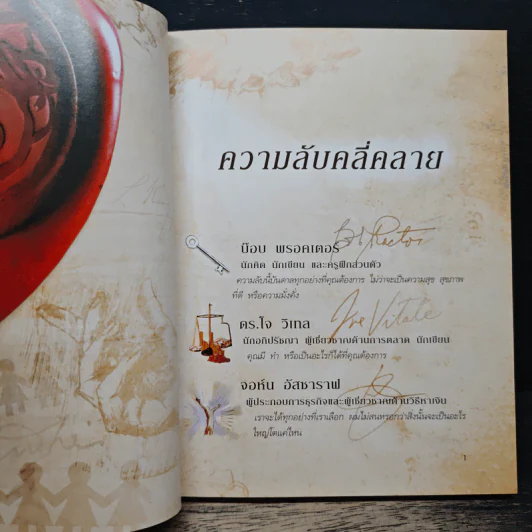 ความลับคลี่คลาย
บ๊อบ พรอคเตอร์
Bob Proctor
นักคิด นักเขียน และครูฝึกส่วนตัว
ความลับนี้บันดาลทุกอย่างที่คุณต้องการ ไม่ว่าจะเป็นความสุข สุขภาพ
ที่ดี หรือความมั่งคั่ง
ดร.โจ วิเทล
Joe Vitale
นักอภิปรัชญา ผู้เชี่ยวชาญด้านการตลาด นักเขียน
คุณมี ทำ หรือเป็นอะไรก็ได้ที่คุณต้องการ
จอห์น อัสซาราฟ
ผู้ประกอบการธุรกิจและผู้เชี่ยวชาญด้านวิธีหาเงิน
เราจะได้ทุกอย่างที่เราเลือก ผมไม่สนหรอกว่าสิ่งนั้นจะเป็นอะไร
ใหญ่โตแค่ไหน
1